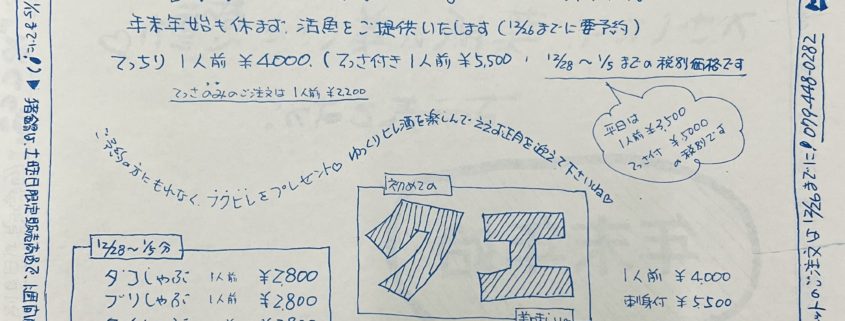 年末年始も休まず、活魚をご提供いたします(12/26までに要予約)
てっちり 1人前 ¥4000.(てっさ付き1人前 ¥5,500, 12/28〜1/5までの税別価格です
てっさのみのご注文は1人前 ¥2,200
平日は
1人前 ¥3,500
てっさ付 ¥5000
の税別です
ご予約の方にもれなく、フグヒレをプレゼント♡ ゆっくりヒレ酒を楽しんで、ええ正月を迎えて下さいね♡
初めての
クエ
美味しい
1人前 ¥4,000
刺身付 ¥5,500
12/28〜1/5分
タコしゃぶ 1人前 ¥2800
ブリしゃぶ 1人前 ¥2800
¥2800
1/5までに!)▶猪鍋は、土曜日限定販売
のご注文は12/26までに!079-448-0282